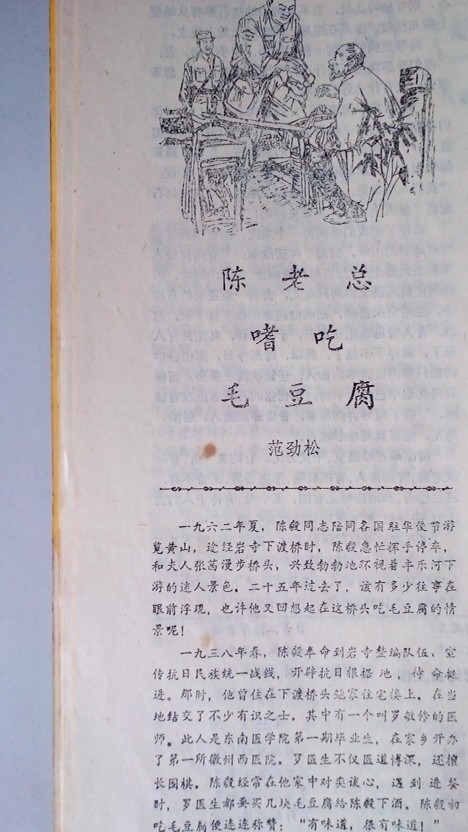 陈老总
嗜吃
毛豆腐
范劲松
一九六二年夏，陈毅同志陪同各国驻华使节游
览黄山，途经岩寺下渡桥时，陈毅急忙挥手停车，
和夫人张茜漫步桥头，兴致勃勃地环视着丰乐河下
游的迷人景色。二十五年过去了，该有多少往事在
眼前浮现，也许他又回想起在这桥头吃毛豆腐的情
景呢！
一九三八年春，陈毅奉命到岩寺整编队伍、宣
传抗日民族统一战线，开辟抗日根据地，待命挺
进。那时，他曾住在下渡桥头鲍家住宅楼上，在当
地结交了不少有识之士。其中有一个叫罗敬修的医
师。此人是东南医学院第一期毕业生，在家乡开办
了第一所徽州西医院。罗医生不仅医道博深，还擅
长围棋。陈毅经常在他家中对奕谈心，遇到进餐
时，罗医生都要买几块毛豆腐给陈毅下酒。陈毅初
吃毛豆腐便连连称赞：“有味道，很有味道！”